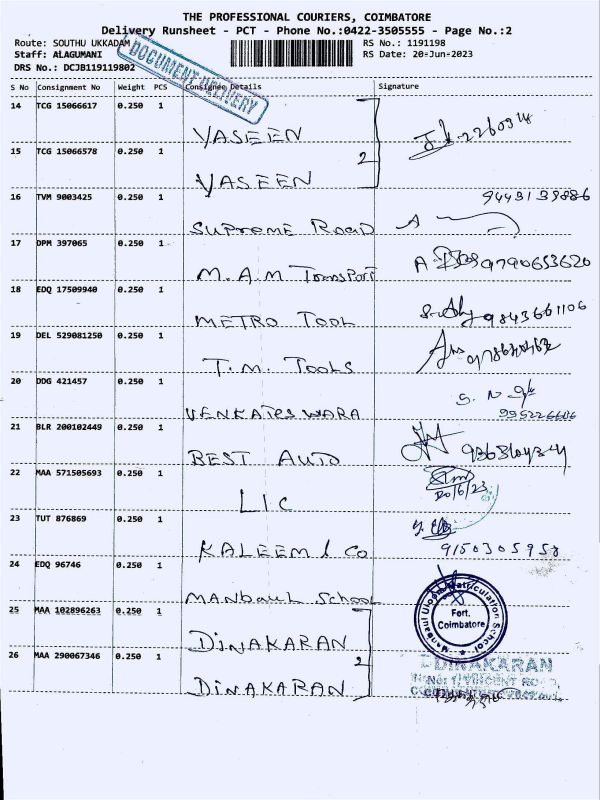 THE PROFESSIONAL COURIERS, COIMBATORE
Delivery Runsheet - PCT - Phone No.:0422-3505555 - Page No.:2
Route: SOUTHU UKKADAM
RS No.: 1191198
Staff: ALAGUMANI
RS Date: 20-Jun-2023
DRS No.: DCJB119119802
DOCUMENT DELIVERY
S No Consignment No Weight PCS Consignee Details Signature
14 TCG 15066617 0.250 1
YASEEN
15 TCG 15066578 0.250 1
2
YASEEN
16 TVM 9003425 0.250 1
9443139886
SUPREME ROAD
17 DPM 397065 0.250 1
M.A.M TransPort
A. 9790653620
18 EDQ 17509940 0.250 1
METRO TOOL
9843661106
19 DEL 529081250 0.250 1
T.M. TOOLS
20 DDG 421457 0.250 1
VENKATESWARA
21 BLR 200102449 0.250 1
BEST AUTO
22 MAA 571505693 0.250 1
LIC
20/6/23
23 TUT 876869 0.250 1
KALEEM & Co
9150305958
24 EDQ 96746 0.250 1
MANBAUL School
Manbaul Uloom Matriculation School
Fort.
Coimbatore
25 MAA 102896263 0.250 1
DINAKARAN
26 MAA 290067346 0.250 1
2
DINAKARAN
DINAKARAN